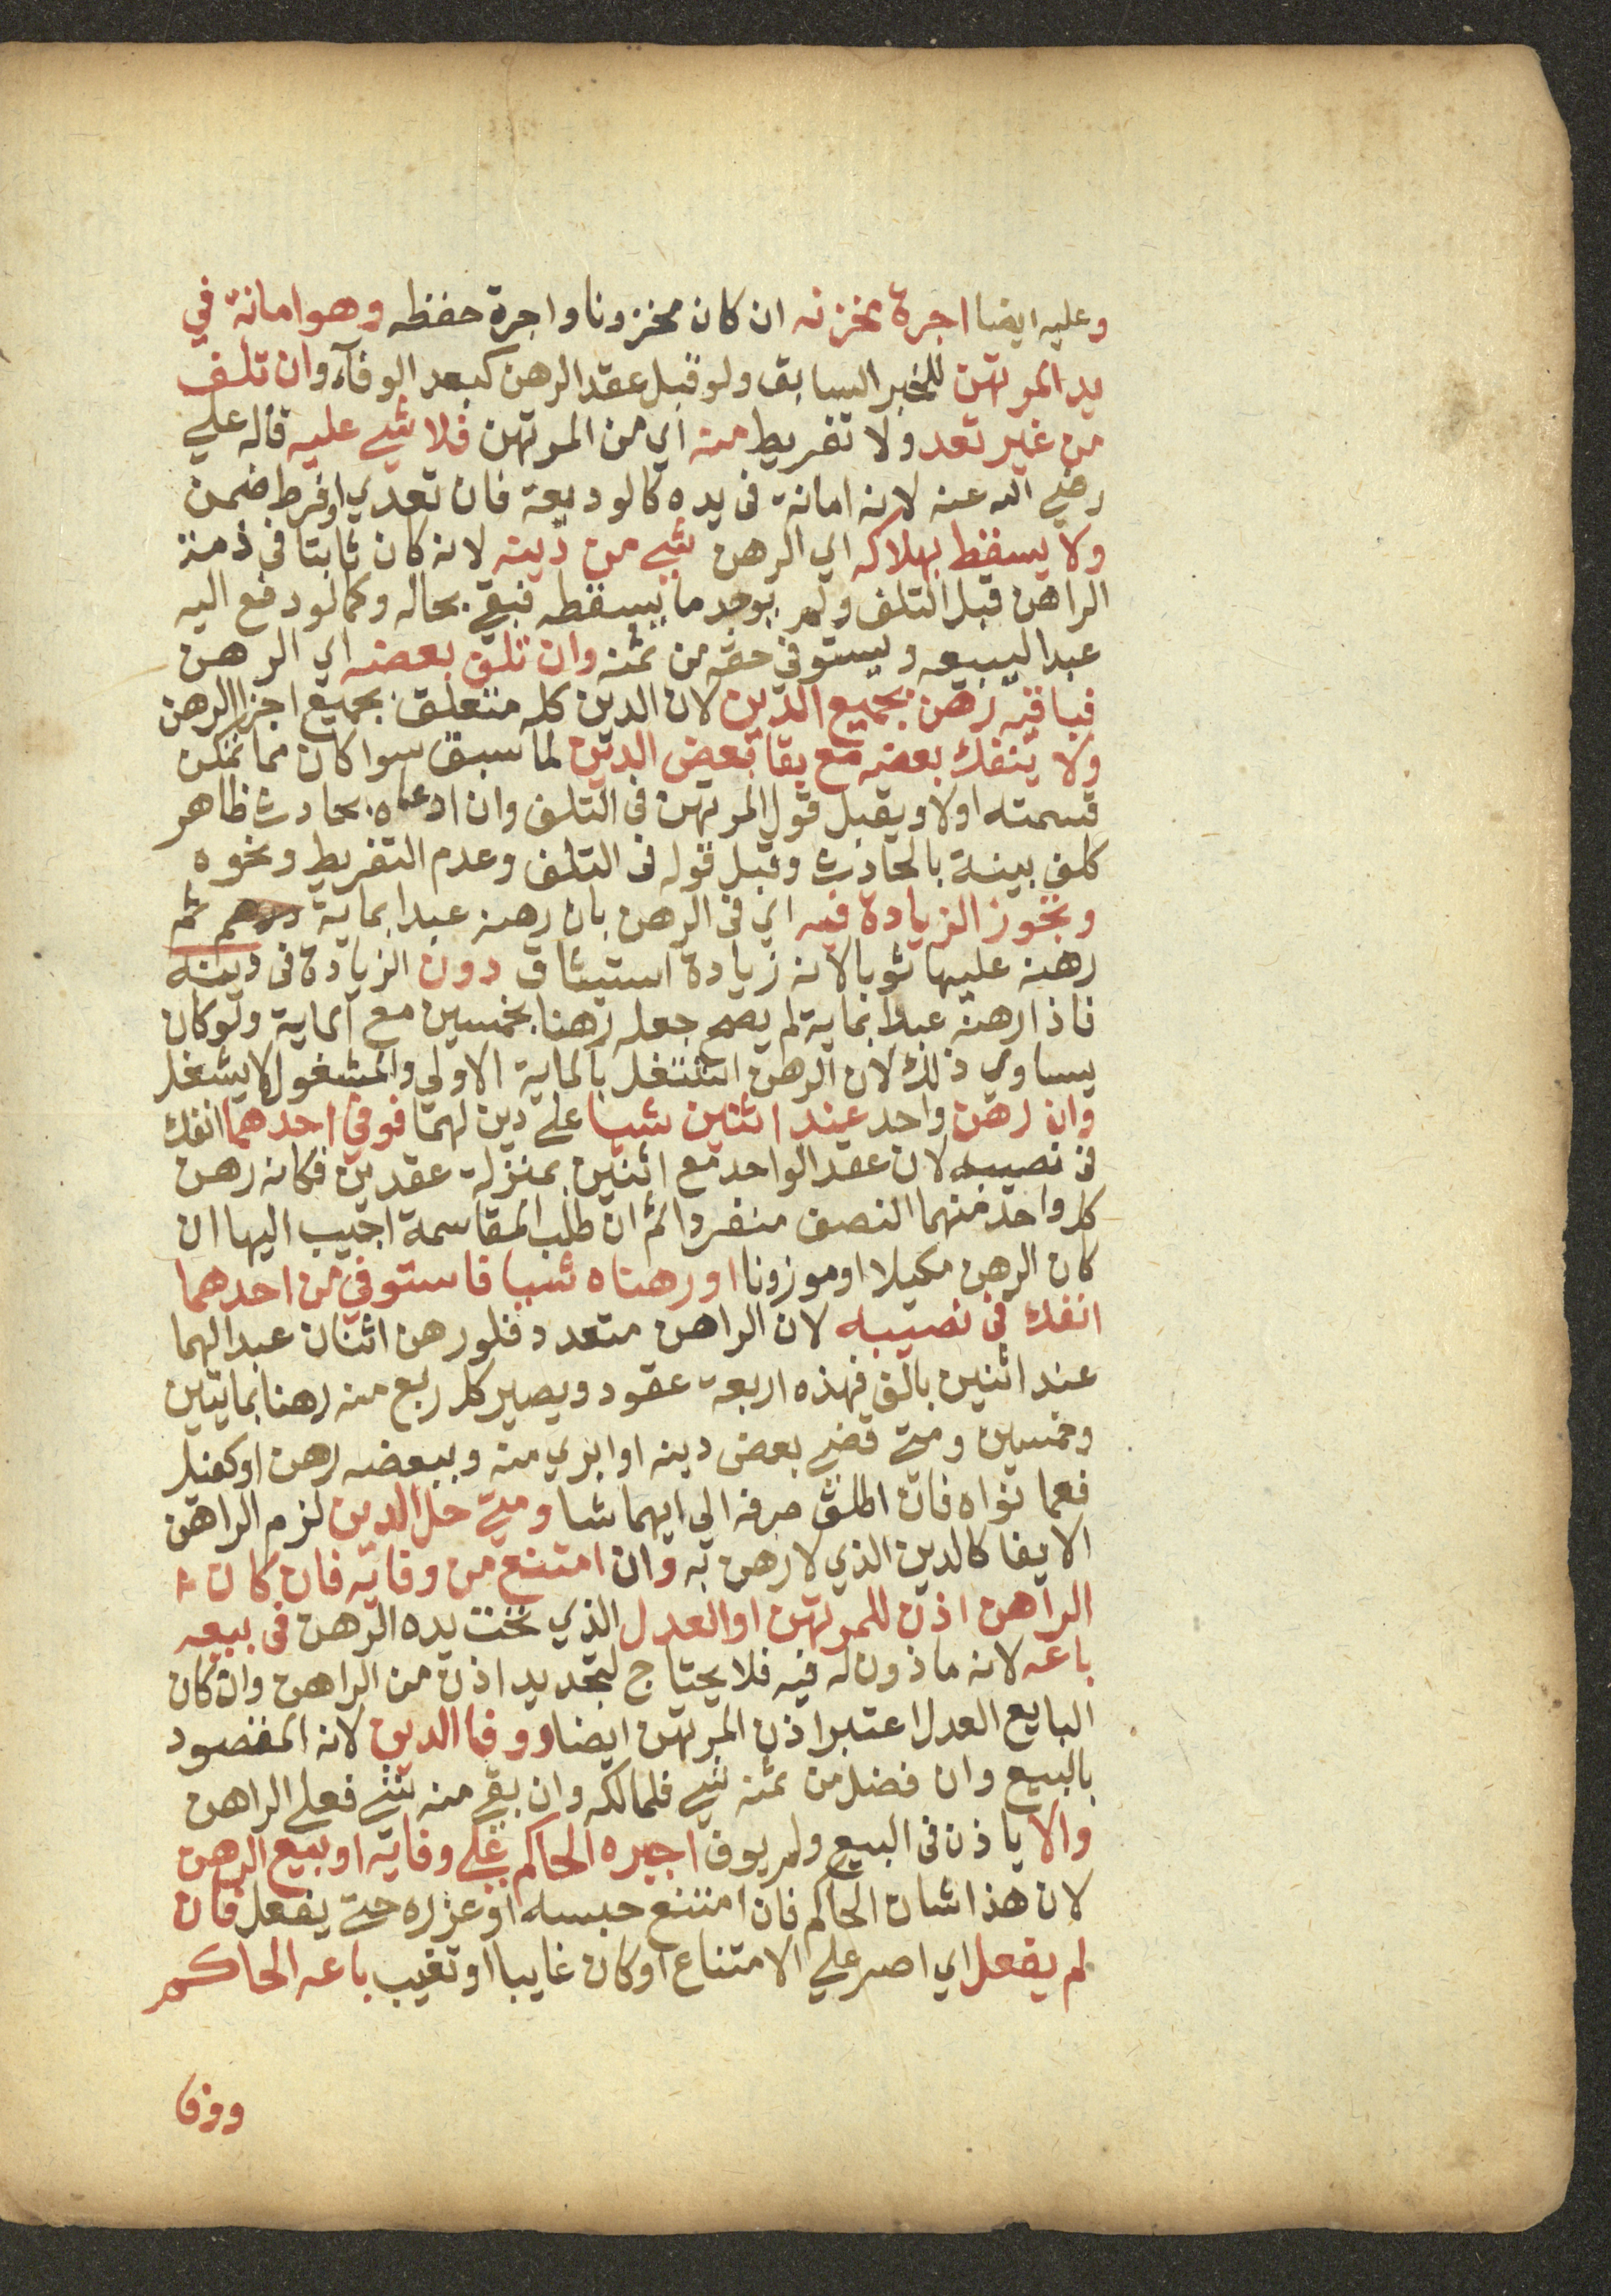 وعليه ايضا اجرة مخزنه ان كان مخزونا واجرة حفظه وهو امانة في
يد المرتهن للخبر السابق ولو قبل عقد الرهن كبعد الوفآء وان تلف
من غير تعد ولا تفريط منه اي من المرتهن فلا شي عليه قاله علي
رضي الله عنه لانه امانة في يده كالوديعة فان تعدي او فرط ضمن
ولا يسقط بهلاكه اي الرهن شي من دينه لانه كان ثابتا في ذمة
الراهن قبل التلف ولم يوجد ما يسقطه فبقي بحاله وكما لو دفع اليه
عبدا ليبيعه ويستوفي حقه من ثمنه وان تلف بعضه اي الرهن
فباقيه رهن بجميع الدين لان الدين كله متعلق بجميع اجزا الرهن
ولا ينفك بعضه مع بقا بعض الدين لما سبق سوا كان مما تمكن
قسمته اولا ويقبل قول المرتهن في التلف وان ادعاه بحادث ظاهر
كلف بينة بالحادث وقبل قوله في التلف وعدم التفريط ونحوه
وتجوز الزيادة فيه اي في الرهن بان رهنه عبدا بماية درهم ثم
رهنه عليها ثوبا لانه زيادة استيثاق دون الزيادة في دينه
فاذا رهنه عبدا بماية لم يصح جعله رهنا بخمسين مع الماية ولو كان
يساوي ذلك لان الرهن اشتغل بالماية الاولي والمشغول لا يشغل
وان رهن واحد عند اثنين شيا علي دين لهما فوفي احدهما انفك
في نصيبه لان عقد الواحد مع اثنين بمنزلة عقدين فكانه رهن
كل واحد منهما النصف منفردا ثم ان طلب المقاسمة اجيب اليها ان
كان الرهن مكيلا او موزونا او رهناه شيا فاستوفي من احدهما
انفك في نصيبه لان الراهن متعدد فلو رهن اثنان عبدا لهما
عند اثنين بالف فهذه اربعة عقود ويصير كل ربع منه رهنا بمايتين
وخمسين ومتي قضي بعض دينه او ابري منه وببعضه رهن او كفيل
فعما نواه فان اطلق صرفه الي ايهما شا ومتي حل الدين لزم الراهن
الايفا كالدين الذي لا رهن به وان امتنع من وفايه فان كان
الراهن اذن للمرتهن او العدل الذي تحت يده الرهن في بيعه
باعه لانه ماذون له فيه فلا يحتاج لتجديد اذن من الراهن وان كان
البايع العدل اعتبر اذن المرتهن ايضا ووفا الدين لانه المقصود
بالبيع وان فضل من ثمنه شي فلمالكه وان بقي منه شي فعلي الراهن
والا ياذن في البيع ولم يوف اجبره الحاكم علي وفايه او بيع الرهن
لان هذا شان الحاكم فان امتنع حبسه او عزره حتي يفعل فان
لم يفعل اي اصر علي الامتناع او كان غايبا او تغيب باعه الحاكم
ووفا